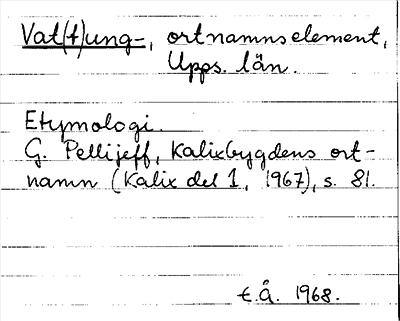 Vat(t)ung-, ortnamnselement,
Upps. län.
Etymologi.
G. Pellijeff, Kalixbygdens ort-
namn (Kalix del 1, 1967), s. 81.
E.Å. 1968.